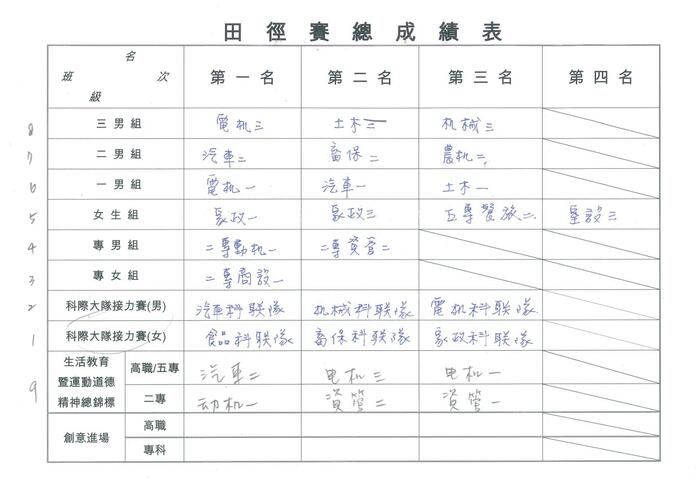 田徑賽總成績表
名次 班級 第一名 第二名 第三名 第四名
8 三男組 電机三 土木三 机械三
7 二男組 汽車二 畜保二 農机二
6 一男組 電机一 汽車一 土木一
5 女生組 家政一 家政三 五專餐旅二 室設三
4 專男組 二專動机一 二專資管二
3 專女組 二專商設一
2 科際大隊接力賽(男) 汽車科联隊 机械科联隊 電机科联隊
1 科際大隊接力賽(女) 食品科联隊 畜保科联隊 家政科联隊
9 生活教育暨運動道德精神總錦標 高職/五專 汽車二 电机三 电机一
二專 动机一 資管二 資管一
創意進場 高職
專科